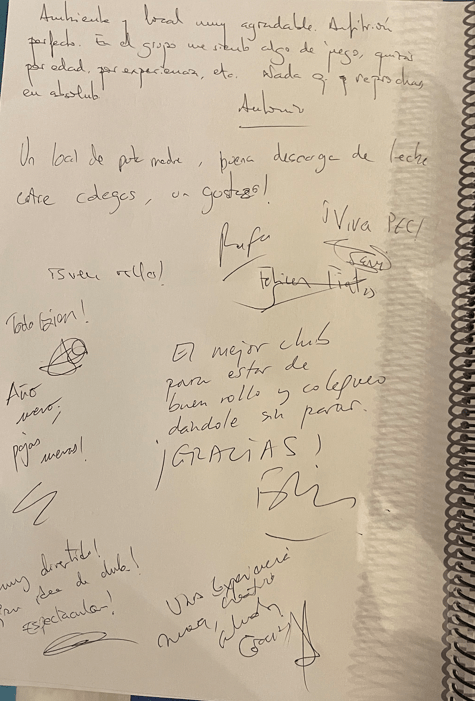 Ambiente y local muy agradable. Anfitrión
perfecto. En el grupo me siento algo de pego, quizás
por edad, por experiencia, etc. Nada q reprochar,
en absoluto.
Antonio
Un local de puta madre, buena descarga de leche
entre colegas, un gustazo!
Rafa
¡Viva PEC!
Buen rollo!
Todo bien!
Año
nuevo,
pajas
nuevas!
El mejor club
para estar de
buen rollo y colegueo
dándole sin parar.
¡GRACIAS!
muy divertido!
idea de club!
Espectacular!
Una experiencia
nueva,
Gracias